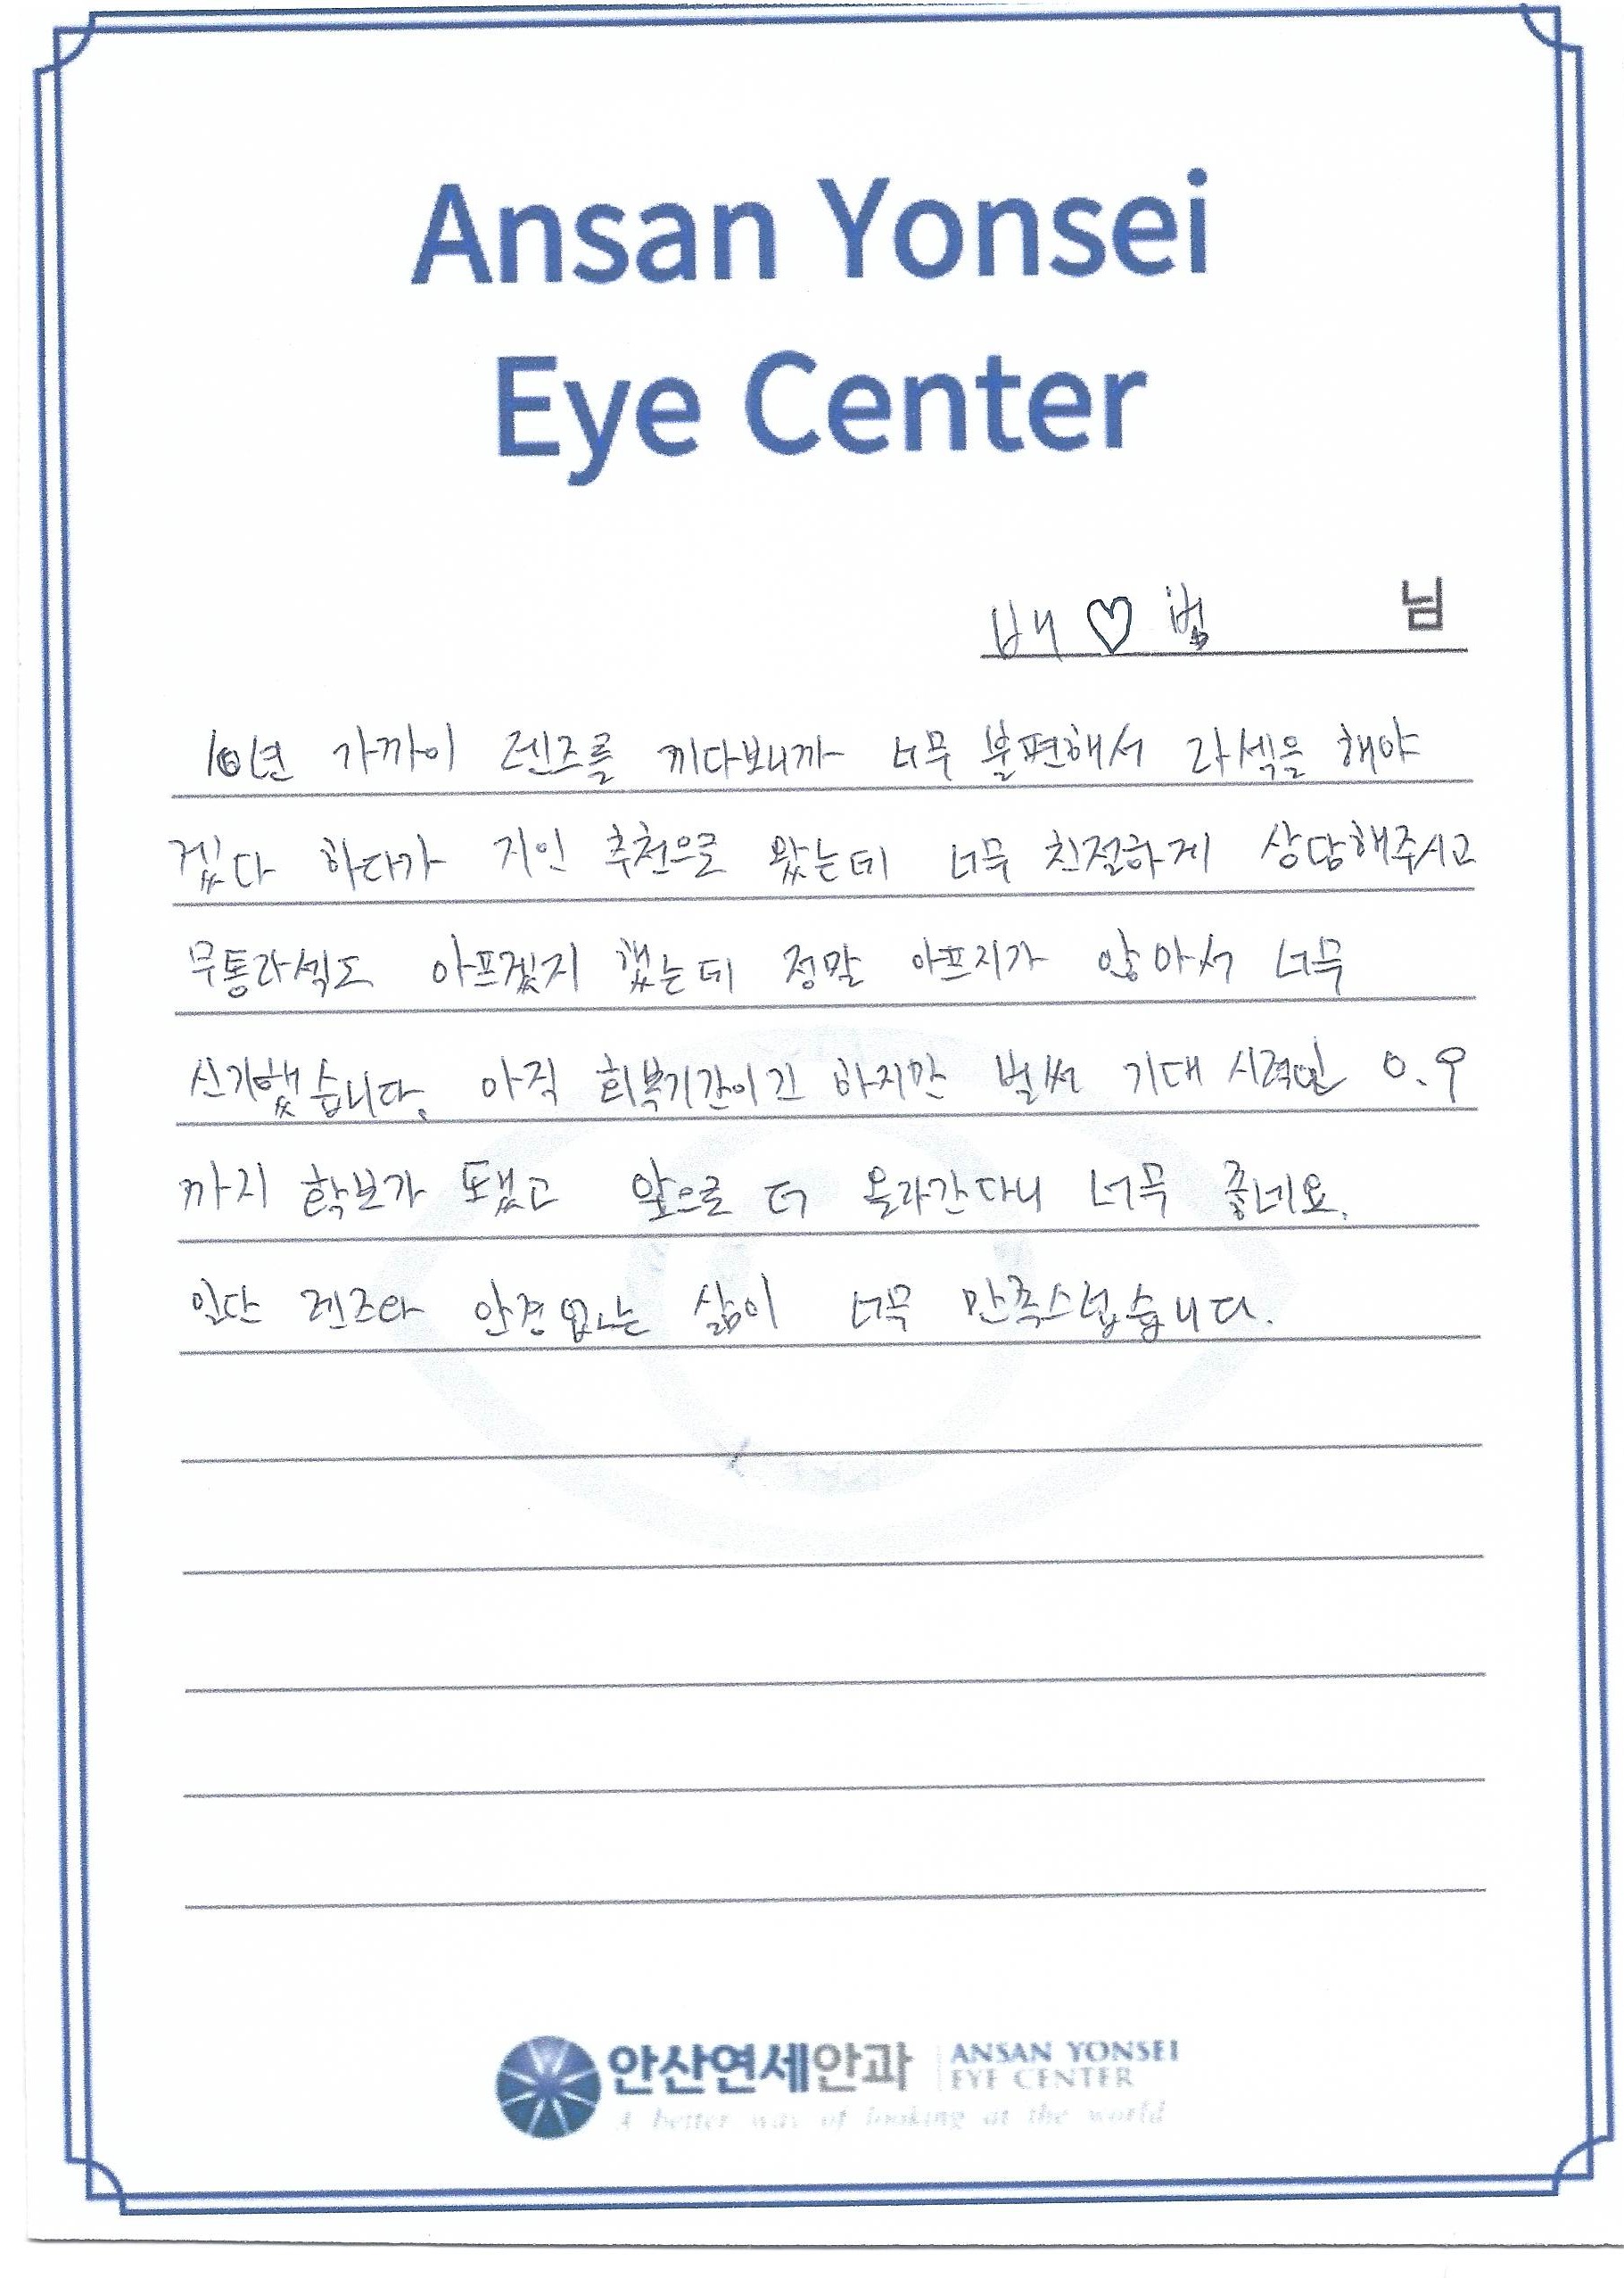 Ansan Yonsei
Eye Center
배 ♡ 범 님
10년 가까이 렌즈를 끼다보니까 너무 불편해서 라섹을 해야
겠다 하다가 지인 추천으로 왔는데 너무 친절하게 상담해주시고
무통라섹도 아프겠지 했는데 정말 아프지가 않아서 너무
신기했습니다. 아직 회복기간이긴 하지만 벌써 기대 시력인 0.9
까지 확보가 됐고 앞으로 더 올라간다니 너무 좋네요.
일단 렌즈와 안경없는 삶이 너무 만족스럽습니다.
안산연세안과 ANSAN YONSEI
EYE CENTER
A better way of looking at the world